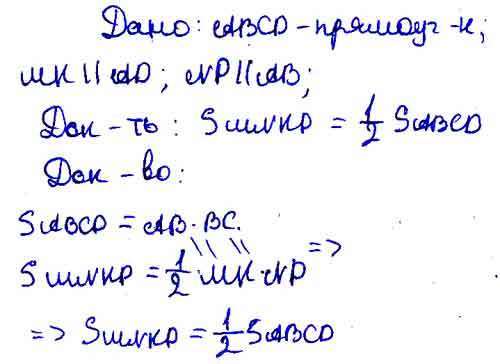 Дано: ABCD - прямоуг-к;
MK || AD; NP || AB;
Док-ть: SMNKP = 1/2 SABCD
Док-во:
SABCD = AB · BC.
\\ \\ =>
SMNKP = 1/2 MK · NP
=> SMNKP = 1/2 SABCD